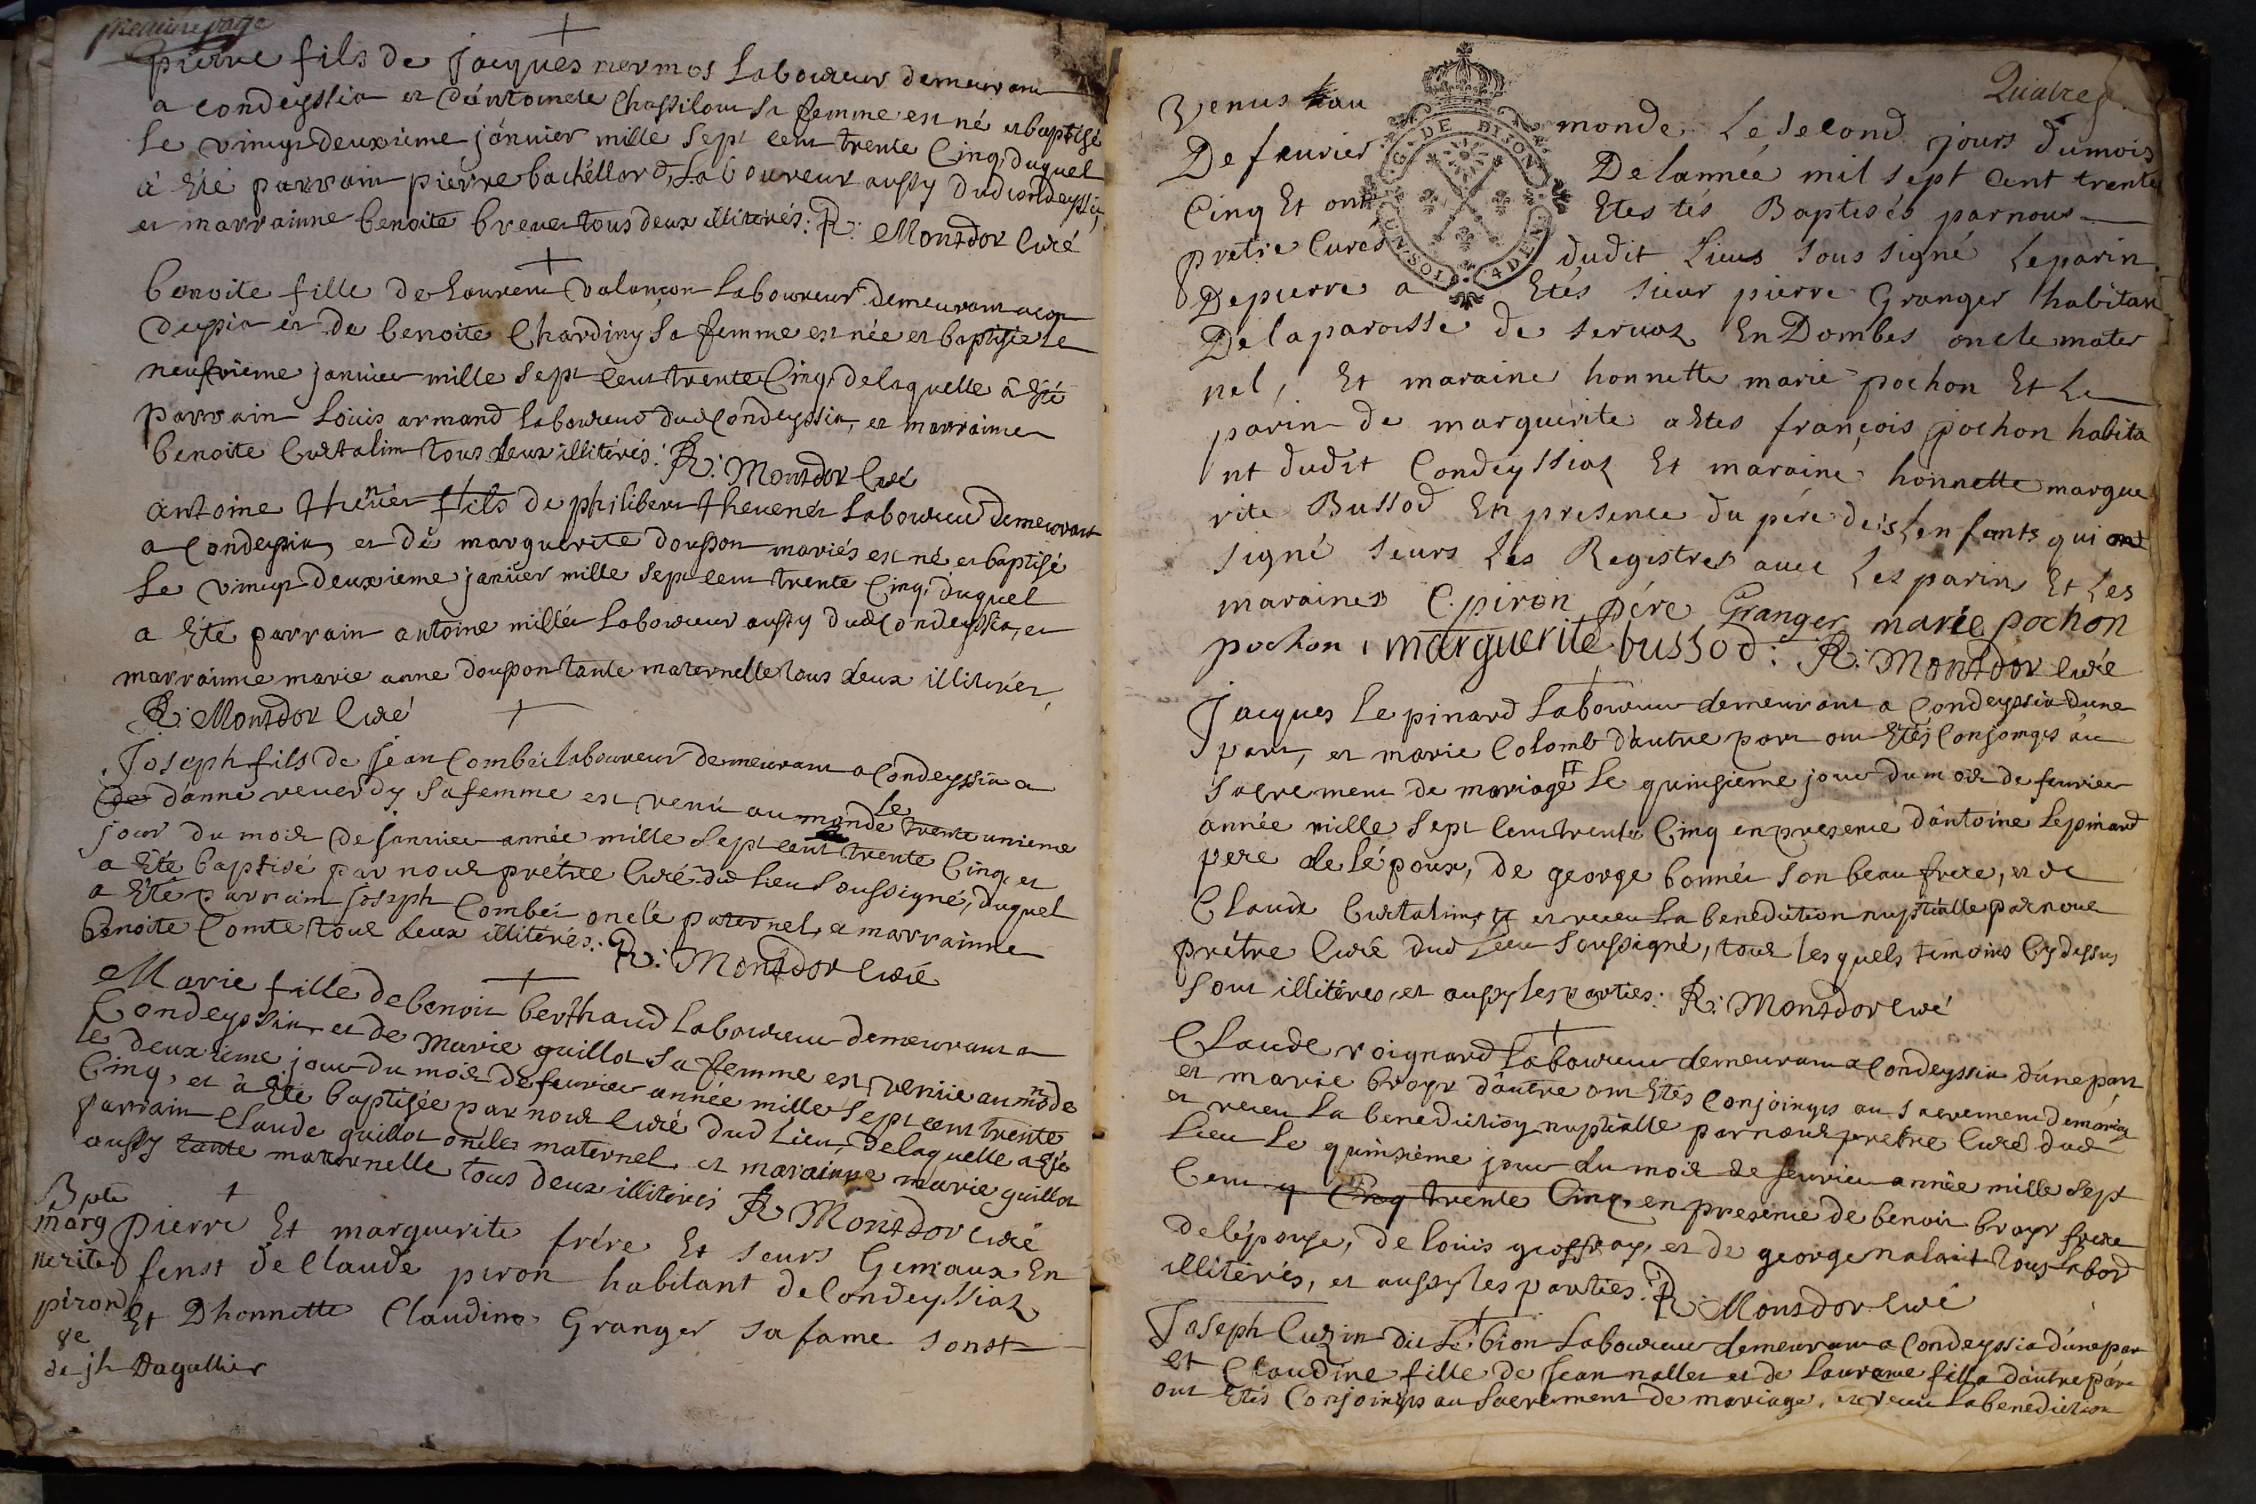 premiere page
pierre fils de jacques mermos laboureur demeurant
a condeyssia et d'antoinete Chassilour sa femme est né et baptisé
le vingt deuxieme janvier mille sept cent trente Cinq, duquel
a été parrain pierre bachellard, laboureur aussy dud condeyssia,
et marrainne benoite brevet tous deux illiterés: R: Montdor Curé
benoite fille de Laurent valançon laboureur demeurant a con
deyssia et de benoite Chardiny sa femme est née et baptisée le
neufvieme janvier mille sept cent trente Cinq, de laquelle a été
parrain Louis armand laboureur dud Condeyssia, et marrainne
benoite Curtalin tous deux illitérés: R: Montdor Curé
antoine fils de philibert thevenet laboureur demeurant
a Condeyssia, et de marguerite douppon mariés est né et baptisé
le vingt deuxieme janvier mille sept cent trente Cinq, duquel
a Eté parrain antoine millet laboureur aussy dud Condeyssia, et
marrainne marie anne douppon tante maternelle tous deux illiterés,
R: Montdor Curé
Joseph fils de Jean Combet laboureur demeurant a Condeyssia et
d'anne reverdy sa femme est venu au monde le trente unieme
jour du mois de janvier année mille sept cent trente Cinq, et
a Eté baptisé par nous prétre Curé dud lieu soussigné, duquel
a Eté parrain joseph Combet oncle paternel, et marrainne
benoite Comte tous deux illitérés: R: Montdor Curé
Marie fille de benoit berthaud laboureur demeurant a
Condeyssia et de Marie guillot sa femme est venüe au monde
le deuxieme jour du mois de fevrier année mille sept cent trente
Cinq, et a Eté baptisée par nous Curé dud lieu, de laquelle a Eté
parrain Claude guillot oncle maternel et marainne marie guillot
aussy tante maternelle tous deux illiterés R: Montdor Curé
Bpte
marg pierre Et marguerite frére Et seurs Gemaux En
uerite fenst de Claude piron habitant de Condeyssiaz
piron Et Dhonnette Claudine Granger sa fame sonst
ge
de jh Dagallier
Quatre
Venus au monde Le second jours du mois
De fevrier De lannée mil sept cent trente
Cinq Et ont Etes tés Baptisés par nous
pretre Curés dudit Lieus sous signé Le parin
De pierre a Etés sieur pierre Granger habitan
De la paroisse de servaz En Dombes oncle mater
nel, Et maraine honnette marie pochon Et Le
parin de marguerite a Etes françois pochon habita
nt dudit Condeyssiaz Et maraine honnette margue
rite Bussod En presence du pére des Lenfants qui ont
signé seurs Les Registres avec Les parins Et Les
maraines C. piron pére Granger marie pochon
pochon, marguerite bussod: R: Montdor Curé
G. DE DIJON
UN SOL 4 DEN
Jacques Lepinard laboureur demeurant a Condeyssia d'une
part, et marie Colomb d'autre part ont Etés Conjoingts au
sacrement de mariage le quinsieme jour du mois de fevrier
année mille sept cent trente Cinq en presence d'antoine Lepinard
pere de lépoux, de george bonnet son beau frere, et de
Claude Curtalin, et receu la benediction nuptialle par nous
prétre Curé dud lieu soussigné, tous les quels temoins Cy dessus
sont illitéres, et aussy les parties: R: Montdor Curé
Claude roignard laboureur demeurant a Condeyssia d'une part,
et marie broyr d'autre ont Etés Conjoingts au sacrement de mariag
et receu la benediction nuptialle par nous pretre Curé dud
lieu le quinsieme jour du mois de fevrier année mille sept
Cent y Cinq trente Cinq, en presence de benoit broyr frere
de l'épouse, de louis et de george nalait tous labor
illitérés, et aussy les parties: R: Montdor Curé
Joseph Cuzin dit le bion laboureur demeurant a Condeyssia d'une par
et Claudine fille de Jean nallet et de fille d'autre par
ont Etés Conjoingts au sacrement de mariage, et receu la benediction